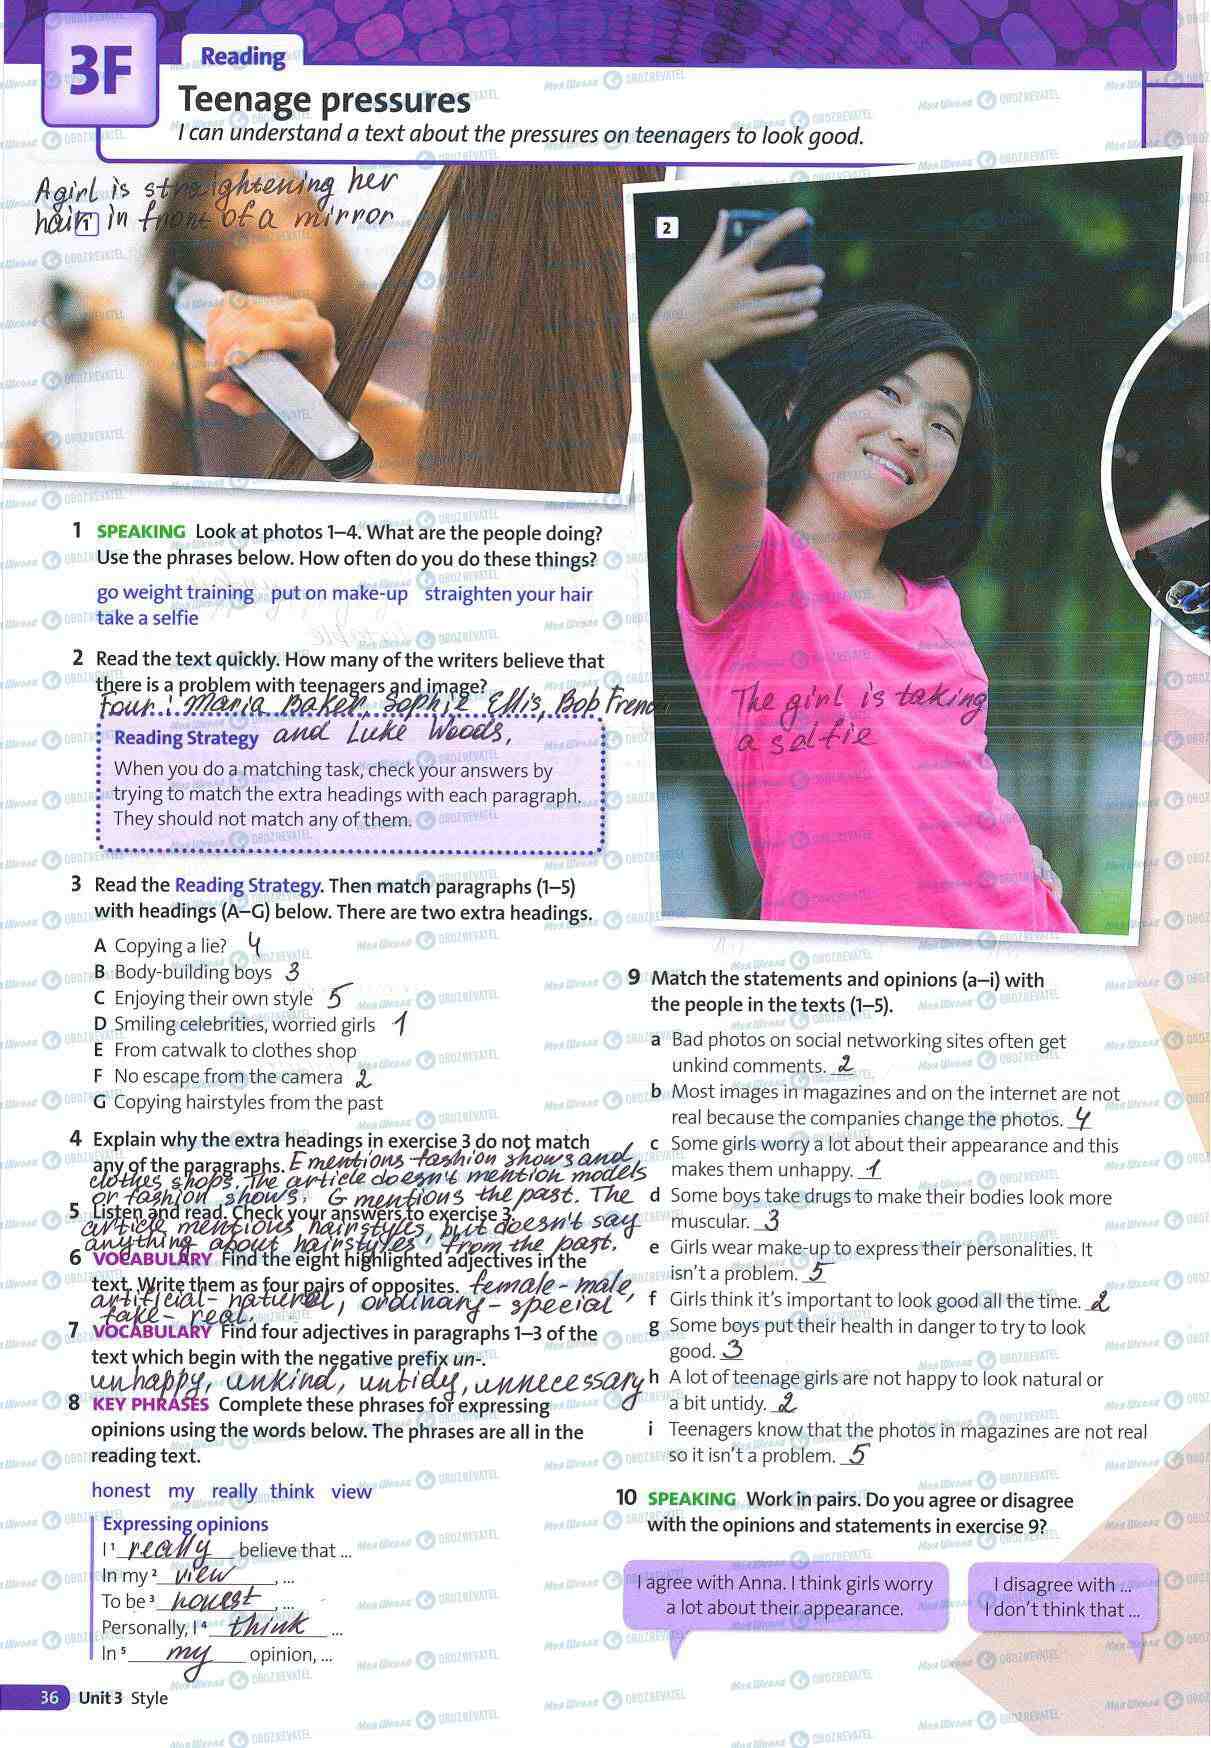 3F
Reading
Teenage pressures
I can understand a text about the pressures on teenagers to look good.
A girl is straightening her
hair in front of a mirror
1
2
1 SPEAKING Look at photos 1–4. What are the people doing?
Use the phrases below. How often do you do these things?
go weight training put on make-up straighten your hair
take a selfie
2 Read the text quickly. How many of the writers believe that
there is a problem with teenagers and image?
Four: Maria Baker, Sophie Ellis, Bob French
and Luke Woods.
Reading Strategy
When you do a matching task, check your answers by
trying to match the extra headings with each paragraph.
They should not match any of them.
The girl is taking
a salfie
3 Read the Reading Strategy. Then match paragraphs (1–5)
with headings (A–G) below. There are two extra headings.
A Copying a lie? 4
B Body-building boys 3
C Enjoying their own style 5
D Smiling celebrities, worried girls 1
E From catwalk to clothes shop
F No escape from the camera 2
G Copying hairstyles from the past
4 Explain why the extra headings in exercise 3 do not match
any of the paragraphs. E mentions fashion shows and
clothes shops. The article doesn't mention models
or fashion shows. G mentions the past. The
5 Listen and read. Check your answers to exercise 3.
article mentions hairstyles, but doesn't say
anything about hairstyles from the past.
6 VOCABULARY Find the eight highlighted adjectives in the
text. Write them as four pairs of opposites. female - male,
artificial - natural, ordinary - special
fake - real.
7 VOCABULARY Find four adjectives in paragraphs 1–3 of the
text which begin with the negative prefix un-.
unhappy, unkind, untidy, unnecessary
8 KEY PHRASES Complete these phrases for expressing
opinions using the words below. The phrases are all in the
reading text.
honest my really think view
Expressing opinions
I 1 really believe that ...
In my 2 view, ...
To be 3 honest, ...
Personally, I 4 think ...
In 5 my opinion, ...
9 Match the statements and opinions (a–i) with
the people in the texts (1–5).
a Bad photos on social networking sites often get
unkind comments. 2
b Most images in magazines and on the internet are not
real because the companies change the photos. 4
c Some girls worry a lot about their appearance and this
makes them unhappy. 1
d Some boys take drugs to make their bodies look more
muscular. 3
e Girls wear make-up to express their personalities. It
isn't a problem. 5
f Girls think it's important to look good all the time. 2
g Some boys put their health in danger to try to look
good. 3
h A lot of teenage girls are not happy to look natural or
a bit untidy. 2
i Teenagers know that the photos in magazines are not real
so it isn't a problem. 5
10 SPEAKING Work in pairs. Do you agree or disagree
with the opinions and statements in exercise 9?
I agree with Anna. I think girls worry
a lot about their appearance.
I disagree with ...
I don't think that ...
36 Unit 3 Style